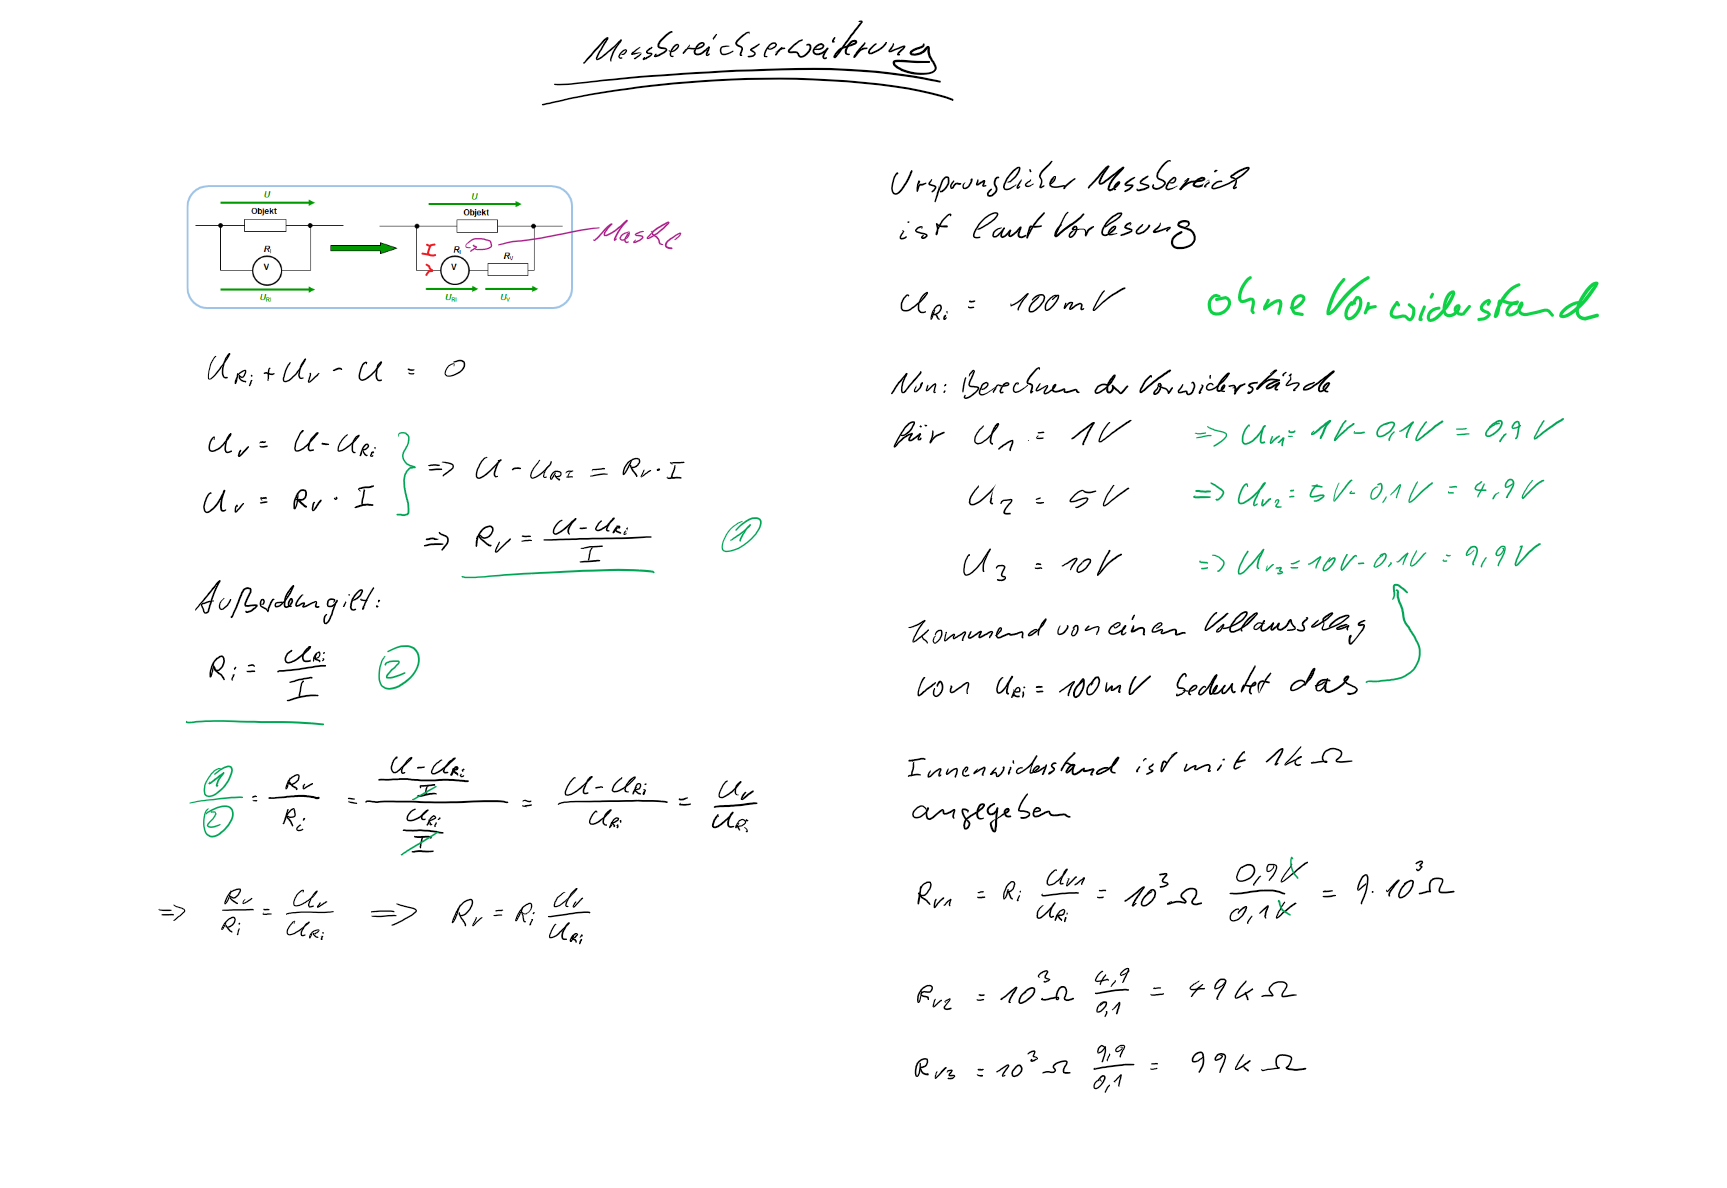 Messbereichserweiterung
U
Objekt
Ri
V
URi
U
Objekt
I
Ri
V
RV
URi
UV
Masche
URi + UV - U = 0
UV = U - URi
UV = RV · I
=> U - URI = RV · I
=> RV = (U - URi) / I ①
Außerdem gilt:
Ri = URi / I ②
① / ② = RV / Ri = ((U - URi) / I) / (URi / I) = (U - URi) / URi = UV / URi
=> RV / Ri = UV / URi => RV = Ri UV / URi
Ursprünglicher Messbereich
ist laut Vorlesung
URi = 100mV ohne Vorwiderstand
Nun: Berechnen der Vorwiderstände
für U1 = 1V => UV1 = 1V - 0,1V = 0,9V
U2 = 5V => UV2 = 5V - 0,1V = 4,9V
U3 = 10V => UV3 = 10V - 0,1V = 9,9V
kommend von einem Vollausschlag
von URi = 100mV bedeutet das
Innenwiderstand ist mit 1kΩ
angegeben
RV1 = Ri UV1 / URi = 10³Ω 0,9V / 0,1V = 9·10³Ω
RV2 = 10³Ω 4,9 / 0,1 = 49kΩ
RV3 = 10³Ω 9,9 / 0,1 = 99kΩ